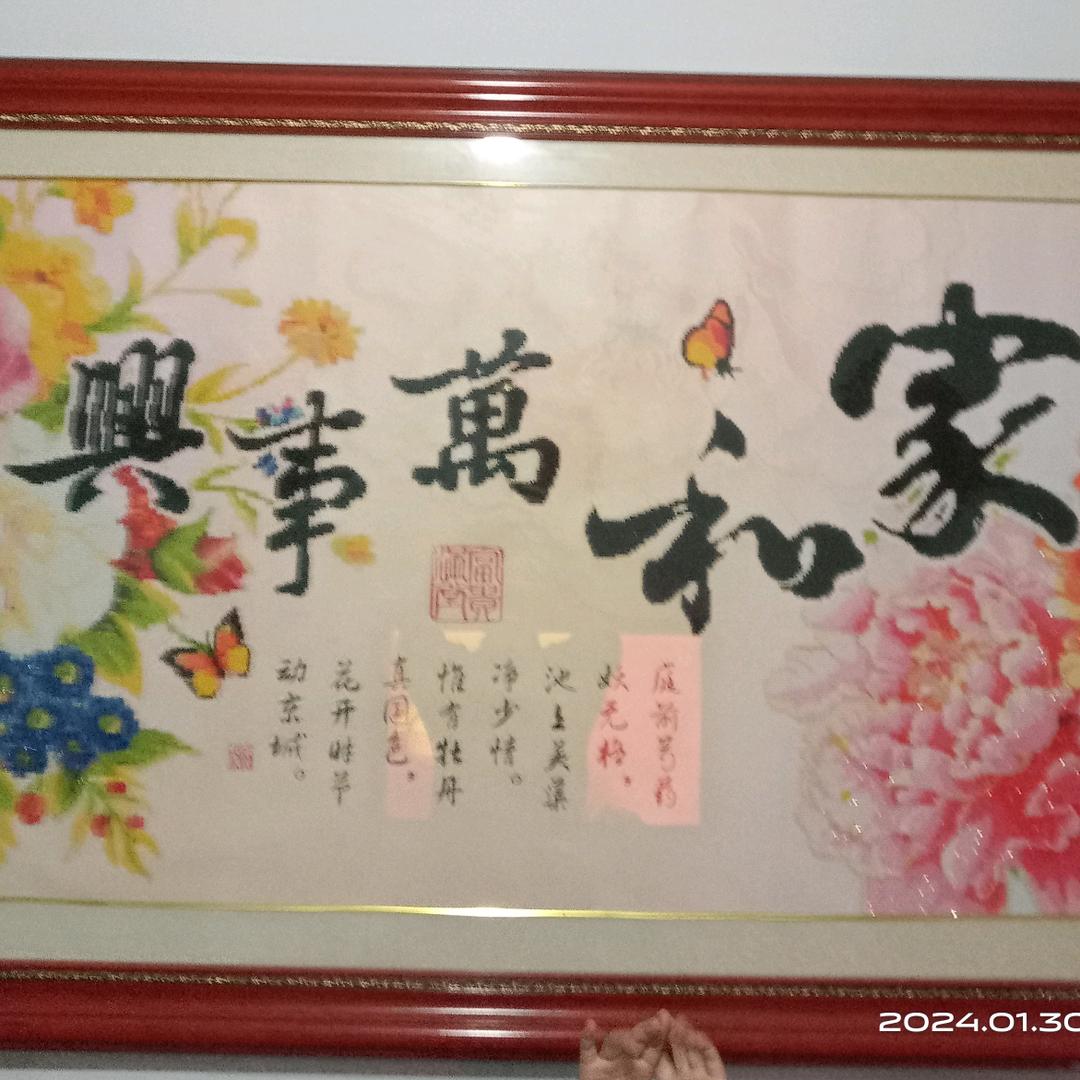 家和萬事興
富貴滿堂
庭前芍药
妖无格，
池上芙蕖
净少情。
惟有牡丹
真国色，
花开时节
动京城。
2024.01.30